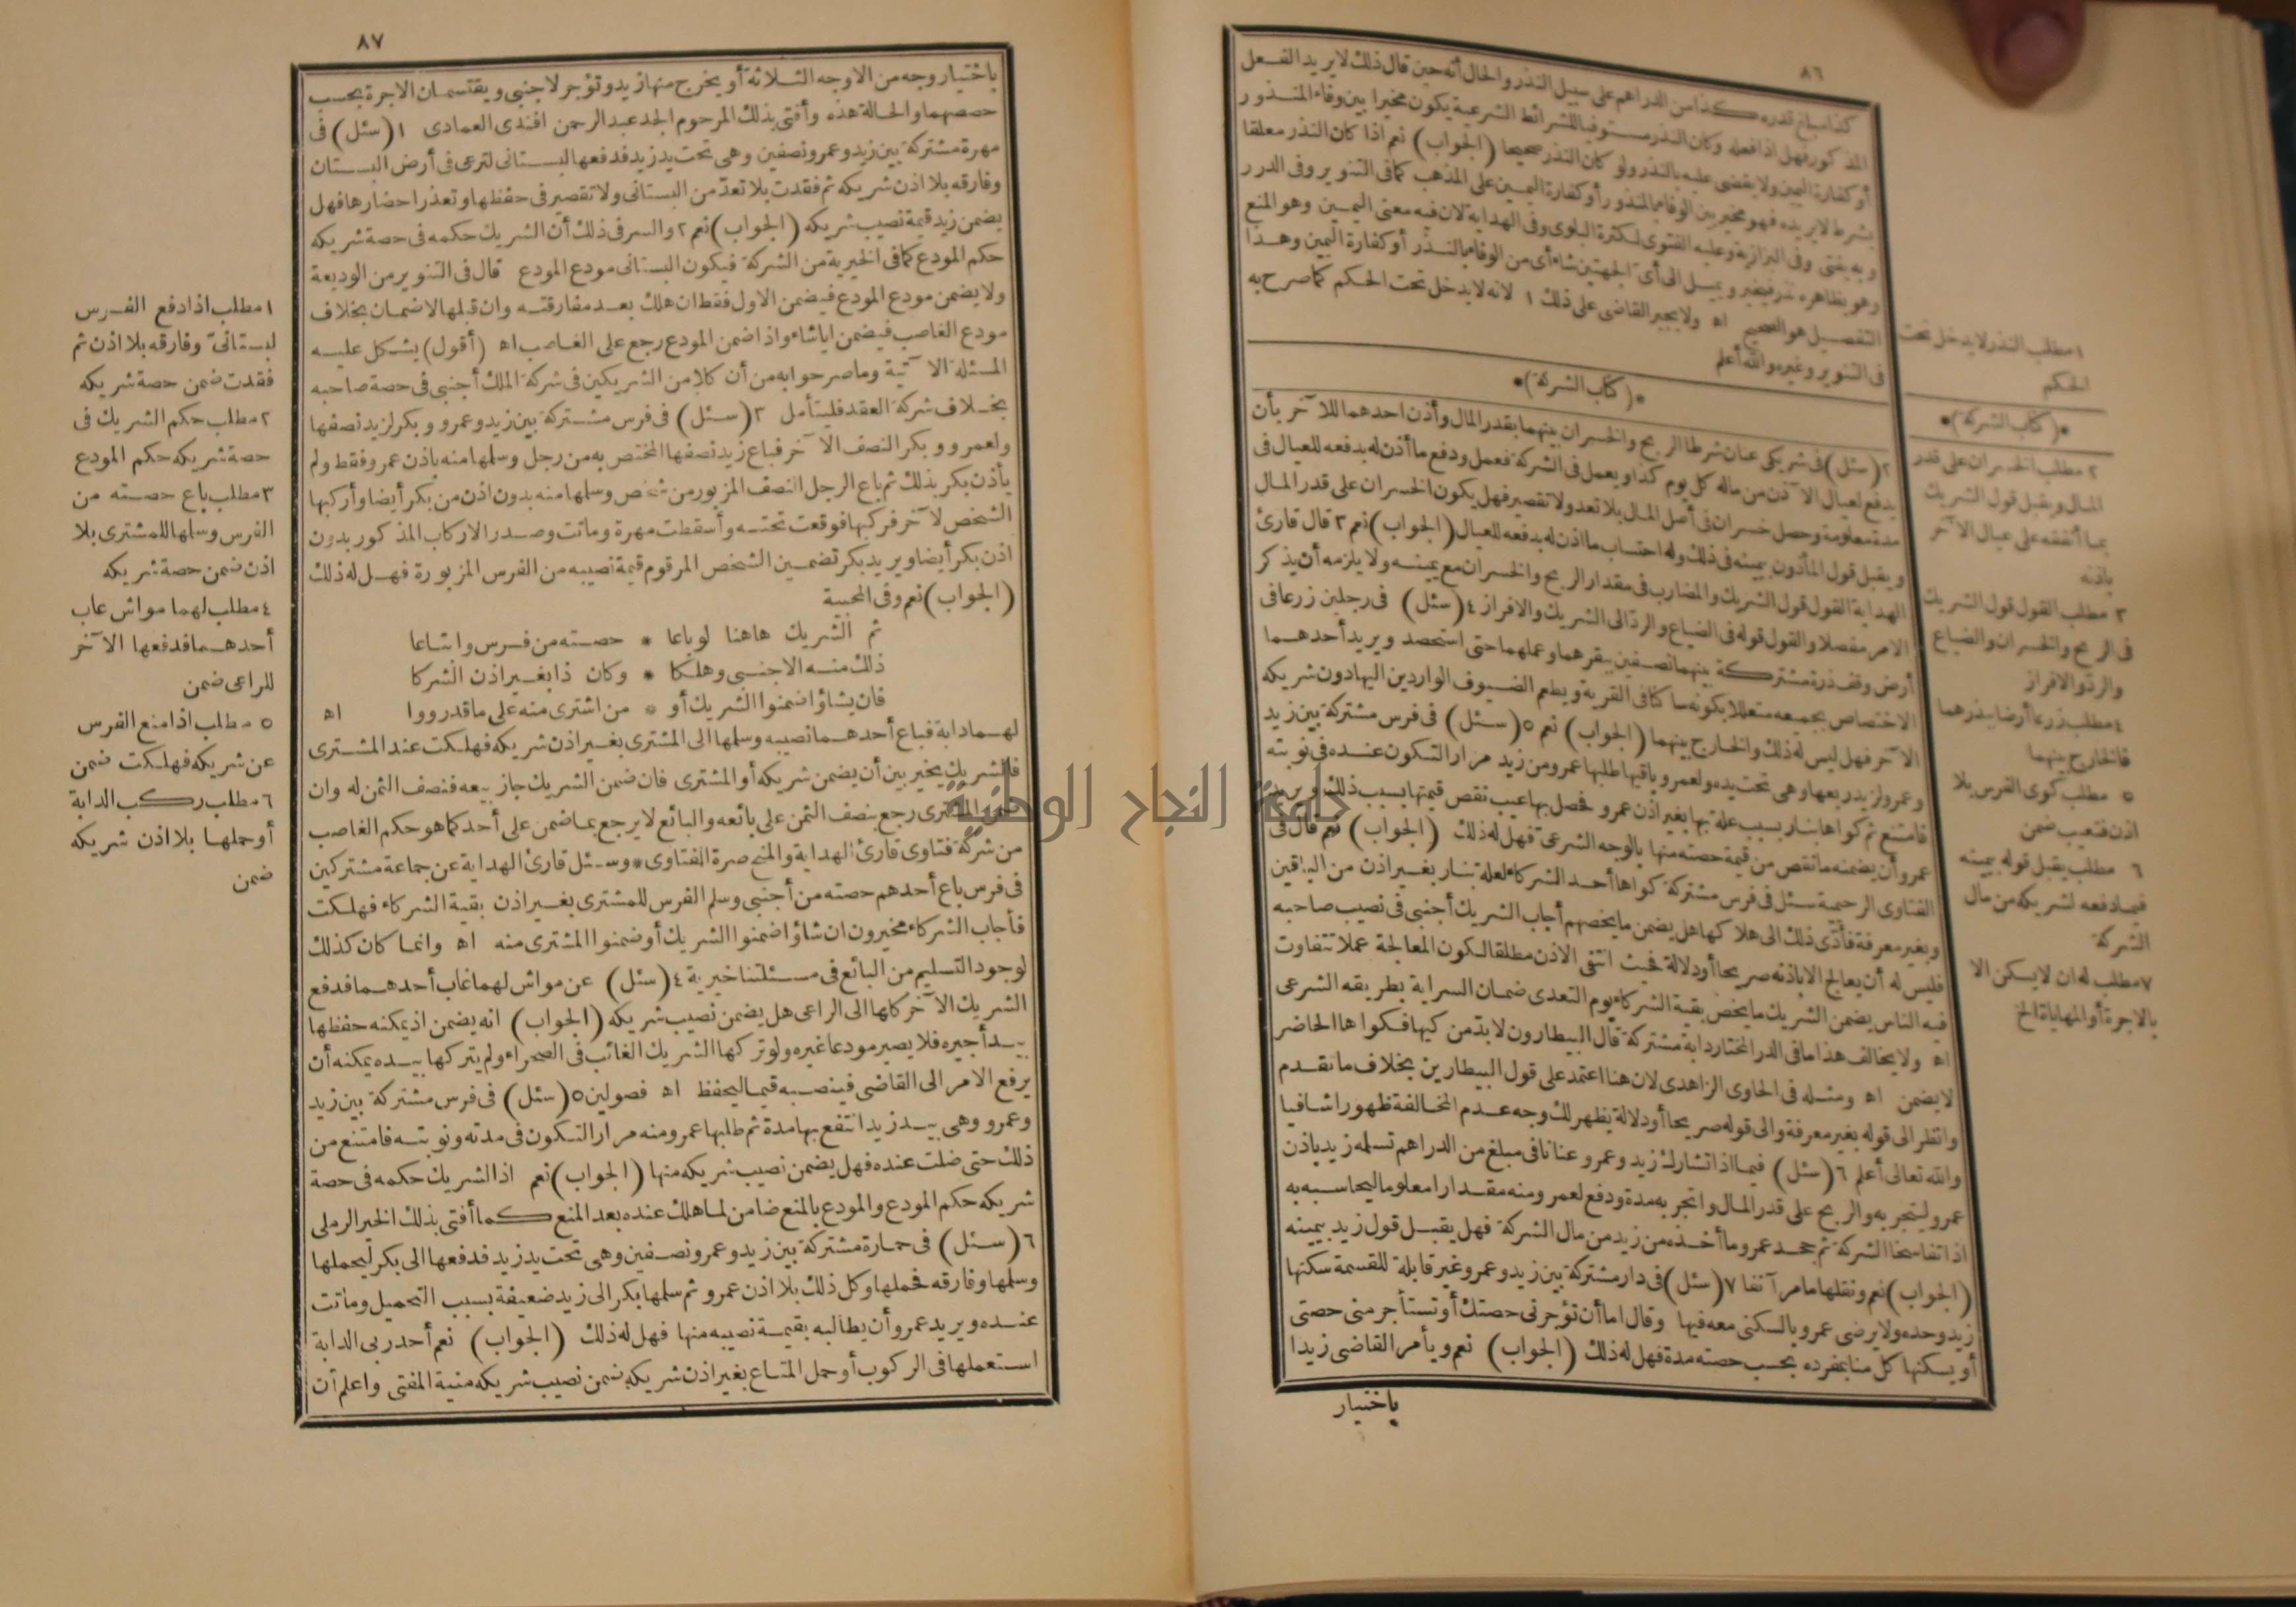 ٨٦
كذا مبلغ قدره كذا من الدراهم على سبيل النذر والحال أنه حين قال ذلك لا يريد الفعل
المذكور فهل اذا فعله وكان النذر مستوفيا للشرائط الشرعية يكون مخيرا بين وفاء المنذور
أو كفارة اليمين ولا يقضى عليه بالنذر ولو كان النذر صحيحا (الجواب) نعم اذا كان النذر معلقا
بشرط لا يريده فهو مخير بين الوفاء بالمنذور أو كفارة اليمين على المذهب كما فى التنوير وفى الدرر
وبه يفتى وفى البزازية وعليه الفتوى لكثرة البلوى وفى الهداية لان فيه معنى اليمين وهو المنع
وهو بظاهره نذر فيتخير ويميل الى أى الجهتين شاء أى من الوفاء بالنذر أو كفارة اليمين وهذا
التفصيل هو الصحيح اه ولا يجبر القاضى على ذلك ١ لانه لا يدخل تحت الحكم كما صرح به
فى التنوير وغيره والله أعلم
*(كتاب الشركة)*
٢ (سئل) فى شريكى عنان شرطا الربح والخسران بينهما بقدر المال وأذن احدهما للآخر بأن
يدفع لعيال الآذن من ماله كل يوم كذا ويعمل فى الشركة فعمل ودفع ما أذن له بدفعه للعيال فى
مدة معلومة وحصل خسران فى أصل المال بلا تعد ولا تقصير فهل يكون الخسران على قدر المال
ويقبل قول المأذون بيمينه فى ذلك وله احتساب ما اذن له بدفعه للعيال (الجواب) نعم ٣ قال قارئ
الهداية القول قول الشريك والمضارب فى مقدار الربح والخسران مع يمينه ولا يلزمه أن يذكر
الامر مفصلا والقول قوله فى الضياع والرد الى الشريك والافراز ٤ (سئل) فى رجلين زرعا فى
أرض وقف ذرة مشتركة بينهما نصفين ببقرهما وعملهما حتى استحصد ويريد أحدهما
الاختصاص بجميعه متعللا بكونه ساكنا فى القرية ويطعم الضيوف الواردين اليها دون شريكه
الآخر فهل ليس له ذلك والخارج بينهما (الجواب) نعم ٥ (سئل) فى فرس مشتركة بين زيد
وعمرو لزيد ربعها وهى تحت يده ولعمرو باقيها طلبها عمرو من زيد مرارا لتكون عنده فى نوبته
فامتنع ثم كواها بنار بسبب علة بها بغير اذن عمرو فحصل بها عيب نقص قيمتها بسبب ذلك ويريد
عمرو أن يضمنه ما نقص من قيمة حصته منها بالوجه الشرعى فهل له ذلك (الجواب) نعم قال فى
الفتاوى الرحيمية سئل فى فرس مشتركة كواها أحد الشركاء لعلة بنار بغير اذن من الباقين
وبغير معرفة فأدّى ذلك الى هلاكها هل يضمن ما يخصهم أجاب الشريك أجنبى فى نصيب صاحبه
فليس له أن يعالج الا باذنه صريحا أو دلالة فحيث انتفى الاذن مطلقا لكون المعالجة عملا تتفاوت
فيه الناس يضمن الشريك ما يخص بقية الشركاء يوم التعدى ضمان السراية بطريقه الشرعى
اه ولا يخالف هذا ما فى الدر المختار دابة مشتركة قال البيطارون لا بدّ من كيها فكواها الحاضر
لا يضمن اه ومثله فى الحاوى الزاهدى لان هنا اعتمد على قول البيطارين بخلاف ما تقدم
وانظر الى قوله بغير معرفة والى قوله صريحا أو دلالة يظهر لك وجه عدم المخالفة ظهورا شافيا
والله تعالى أعلم ٦ (سئل) فيما اذا تشارك زيد وعمرو عنانا فى مبلغ من الدراهم تسلمه زيد باذن
عمرو ليتجر به والربح على قدر المال واتجر به مدة ودفع لعمرو منه مقدارا معلوما ليحاسبه به
اذا تفاسخا الشركة ثم جحد عمرو ما أخذه من زيد من مال الشركة فهل يقبل قول زيد بيمينه
(الجواب) نعم ونقلها ما مر آنفا ٧ (سئل) فى دار مشتركة بين زيد وعمرو غير قابلة للقسمة سكنها
زيد وحده ولا يرضى عمرو بالسكنى معه فيها وقال اما أن تؤجرنى حصتك أو تستأجر منى حصتى
أو يسكنها كل منا بمفرده بحسب حصته مدة فهل له ذلك (الجواب) نعم ويأمر القاضى زيدا
باختيار
١ مطلب النذر لا يدخل تحت
الحكم
*(كتاب الشركة)*
٢ مطلب الخسران على قدر
المال ويقبل قول الشريك
بما أنفقه على عيال الآخر
باذنه
٣ مطلب القول قول الشريك
فى الربح والخسران والضياع
والرد والافراز
٤ مطلب زرعا أرضا ببذرهما
فالخارج بينهما
٥ مطلب كوى الفرس بلا
اذن فتعيب ضمن
٦ مطلب يقبل قوله بيمينه
فيما دفعه لشريكه من مال
الشركة
٧ مطلب له ان لا يسكن الا
بالاجرة أو المهايأة الخ
٨٧
باختيار وجه من الاوجه الثلاثة أو يخرج منها زيد وتؤجر لاجنبى ويقتسمان الاجرة بحسب
حصصهما والحالة هذه وأفتى بذلك المرحوم الجد عبد الرحمن افندى العمادى ١ (سئل) فى
مهرة مشتركة بين زيد وعمرو نصفين وهى تحت يد زيد فدفعها لبستانى لترعى فى أرض البستان
وفارقه بلا اذن شريكه ثم فقدت بلا تعدّ من البستانى ولا تقصير فى حفظها وتعذر احضارها فهل
يضمن زيد قيمة نصيب شريكه (الجواب) نعم ٢ والسر فى ذلك أن الشريك حكمه فى حصة شريكه
حكم المودع كما فى الخيرية من الشركة فيكون البستانى مودع المودع قال فى التنوير من الوديعة
ولا يضمن مودع المودع فيضمن الاول فقط ان هلك بعد مفارقته وان قبلها لا ضمان بخلاف
مودع الغاصب فيضمن ايا شاء واذا ضمن المودع رجع على الغاصب اه (أقول) يشكل عليه
المسئلة الآتية وما صر جوابه من أن كلا من الشريكين فى شركة الملك أجنبى فى حصة صاحبه
بخلاف شركة العقد فليتأمل ٣ (سئل) فى فرس مشتركة بين زيد وعمرو وبكر لزيد نصفها
ولعمرو وبكر النصف الآخر فباع زيد نصفها المختص به من رجل وسلمها منه باذن عمرو فقط ولم
يأذن بكر بذلك ثم باع الرجل النصف المزبور من شخص وسلمها منه بدون اذن من بكر أيضا وأركبها
الشخص لآخر فركبها فوقعت تحته وأسقطت مهرة وماتت وصدر الاركاب المذكور بدون
اذن بكر أيضا ويريد بكر تضمين الشخص المرقوم قيمة نصيبه من الفرس المزبورة فهل له ذلك
(الجواب) نعم وفى المحبية
ثم الشريك هاهنا لو باعا * حصته من فرس وابتاعا
ذلك منه الاجنبى وهلكا * وكان ذا بغير اذن الشركا
فان يشاؤا ضمنوا الشريك أو * من اشترى منه على ما قدرووا اه
لهما دابة فباع أحدهما نصيبه وسلمها الى المشترى بغير اذن شريكه فهلكت عند المشترى
فالشريك يخير بين أن يضمن شريكه أو المشترى فان ضمن الشريك جاز بيعه فنصف الثمن له وان
ضمن المشترى رجع بنصف الثمن على بائعه والبائع لا يرجع بما ضمن على أحد كما هو حكم الغاصب
من شركة فتاوى قارئ الهداية والمنح صرة الفتاوى * وسئل قارئ الهداية عن جماعة مشتركين
فى فرس باع أحدهم حصته من أجنبى وسلم الفرس للمشترى بغير اذن بقية الشركاء فهلكت
فأجاب الشركاء مخيرون ان شاؤا ضمنوا الشريك أو ضمنوا المشترى منه اه وانما كان كذلك
لوجود التسليم من البائع فى مسئلتنا خيرية ٤ (سئل) عن مواش لهما غاب أحدهما فدفع
الشريك الآخر كلها الى الراعى هل يضمن نصيب شريكه (الجواب) انه يضمن اذ يمكنه حفظها
بيد أجيره فلا يصير مودعا غيره ولو تركها الشريك الغائب فى الصحراء ولم يتركها بيده يمكنه أن
يرفع الامر الى القاضى فينصبه قيما ليحفظ اه فصولين ٥ (سئل) فى فرس مشتركة بين زيد
وعمرو وهى بيد زيد انتفع بها مدة ثم طلبها عمرو منه مرارا لتكون فى مدته ونوبته فامتنع من
ذلك حتى ضلت عنده فهل يضمن نصيب شريكه منها (الجواب) نعم اذ الشريك حكمه فى حصة
شريكه حكم المودع والمودع بالمنع ضامن لما هلك عنده بعد المنع كما أفتى بذلك الخير الرملى
٦ (سئل) فى حمارة مشتركة بين زيد وعمرو نصفين وهى تحت يد زيد فدفعها الى بكر ليحملها
وسلمها وفارقه فحملها وكل ذلك بلا اذن عمرو ثم سلمها بكر الى زيد ضعيفة بسبب التحميل وماتت
عنده ويريد عمرو أن يطالبه بقيمة نصيبه منها فهل له ذلك (الجواب) نعم أحد ربى الدابة
استعملها فى الركوب أو حمل المتاع بغير اذن شريكه ضمن نصيب شريكه منية المفتى واعلم أن
١ مطلب اذا دفع الفرس
لبستانىّ وفارقه بلا اذن ثم
فقدت ضمن حصة شريكه
٢ مطلب حكم الشريك فى
حصة شريكه حكم المودع
٣ مطلب باع حصته من
الفرس وسلمها للمشترى بلا
اذن ضمن حصة شريكه
٤ مطلب لهما مواش غاب
أحدهما فدفعها الآخر
للراعى ضمن
٥ مطلب اذا منع الفرس
عن شريكه فهلكت ضمن
٦ مطلب ركب الدابة
أو حملها بلا اذن شريكه
ضمن
جامعة النجاح الوطنية